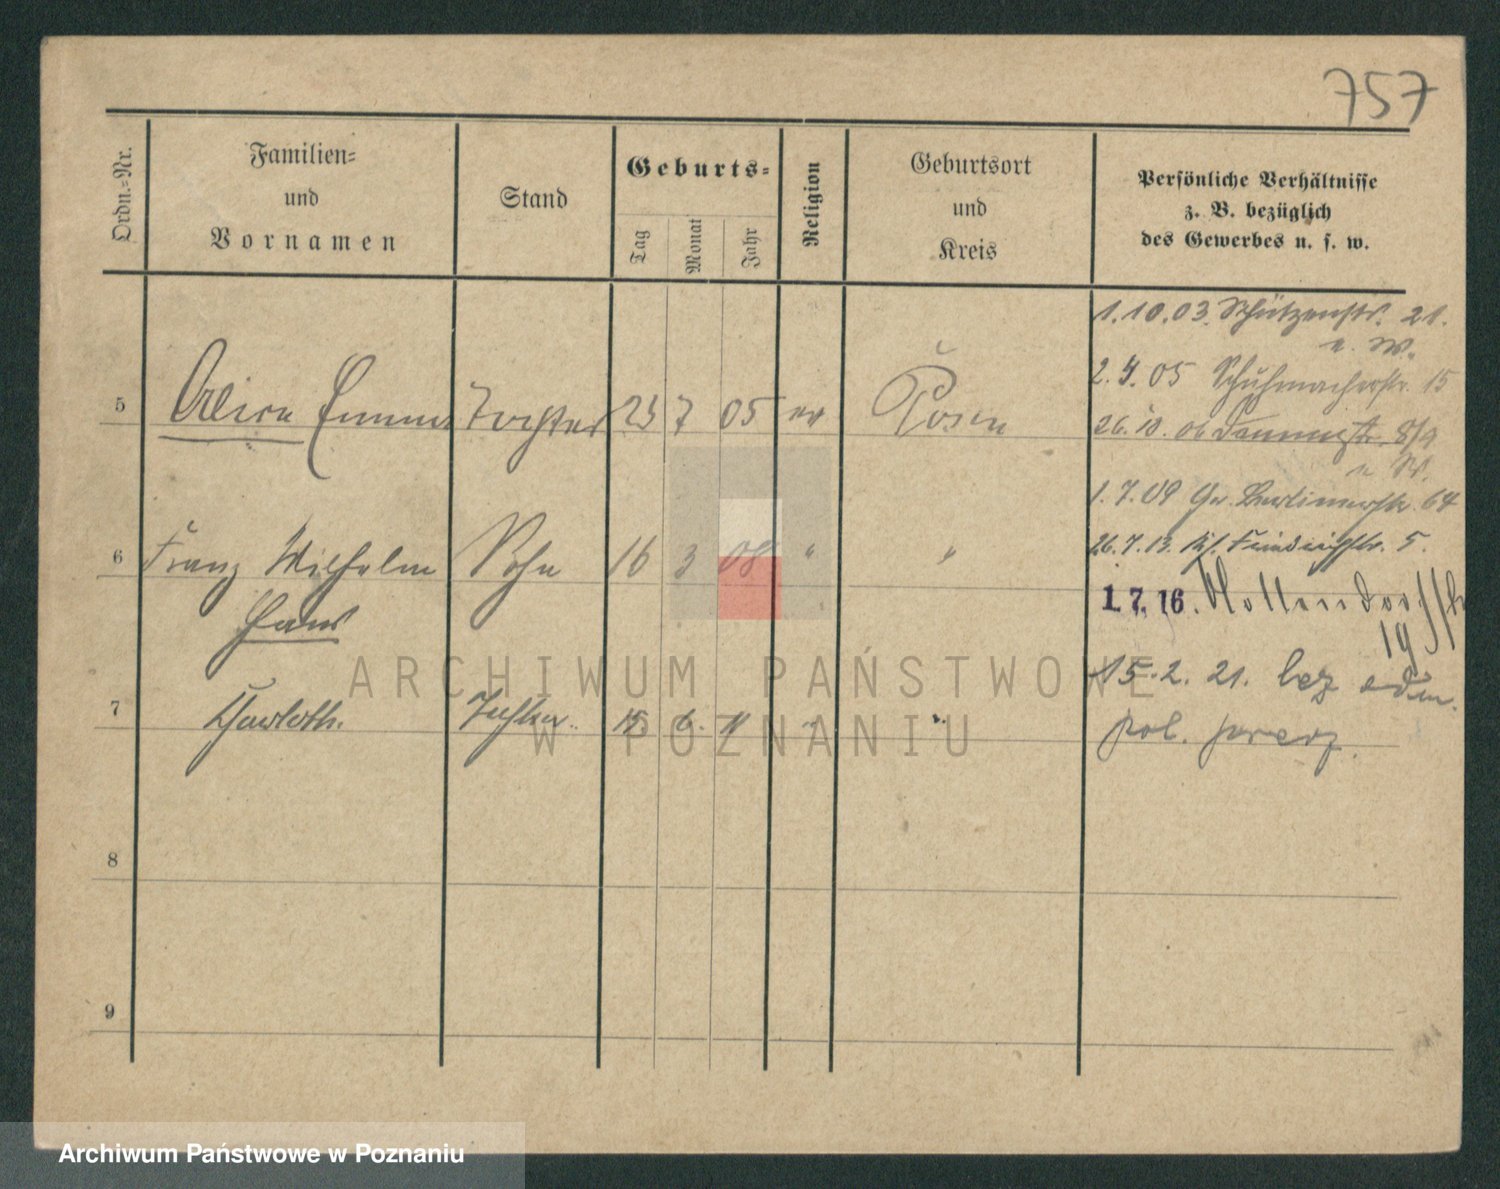 757
Ordn.=Nr.
Familien=
und
Vornamen
Stand
Geburts=
Tag
Monat
Jahr
Religion
Geburtsort
und
Kreis
Persönliche Verhältnisse
z. B. bezüglich
des Gewerbes u. s. w.
1.10.03. Schützenstr. 21.
u. W.
2.4.05 Schuhmacherstr. 15
5 Emma Tochter 23 7 05 ev Posen
26.10.06 8/9
u W.
1.7.09 Gr. Berlinerstr. 64
26.7.13. Friedrichstr. 5.
6 Franz Wilhelm Sohn 16 3 08 " "
Hans
1.7.16.
19
15.2.21. bez adm.
7 Tochter 15. 6. 11 " "
pol. przez.
8
9
ARCHIWUM PAŃSTWOWE
W POZNANIU
Archiwum Państwowe w Poznaniu